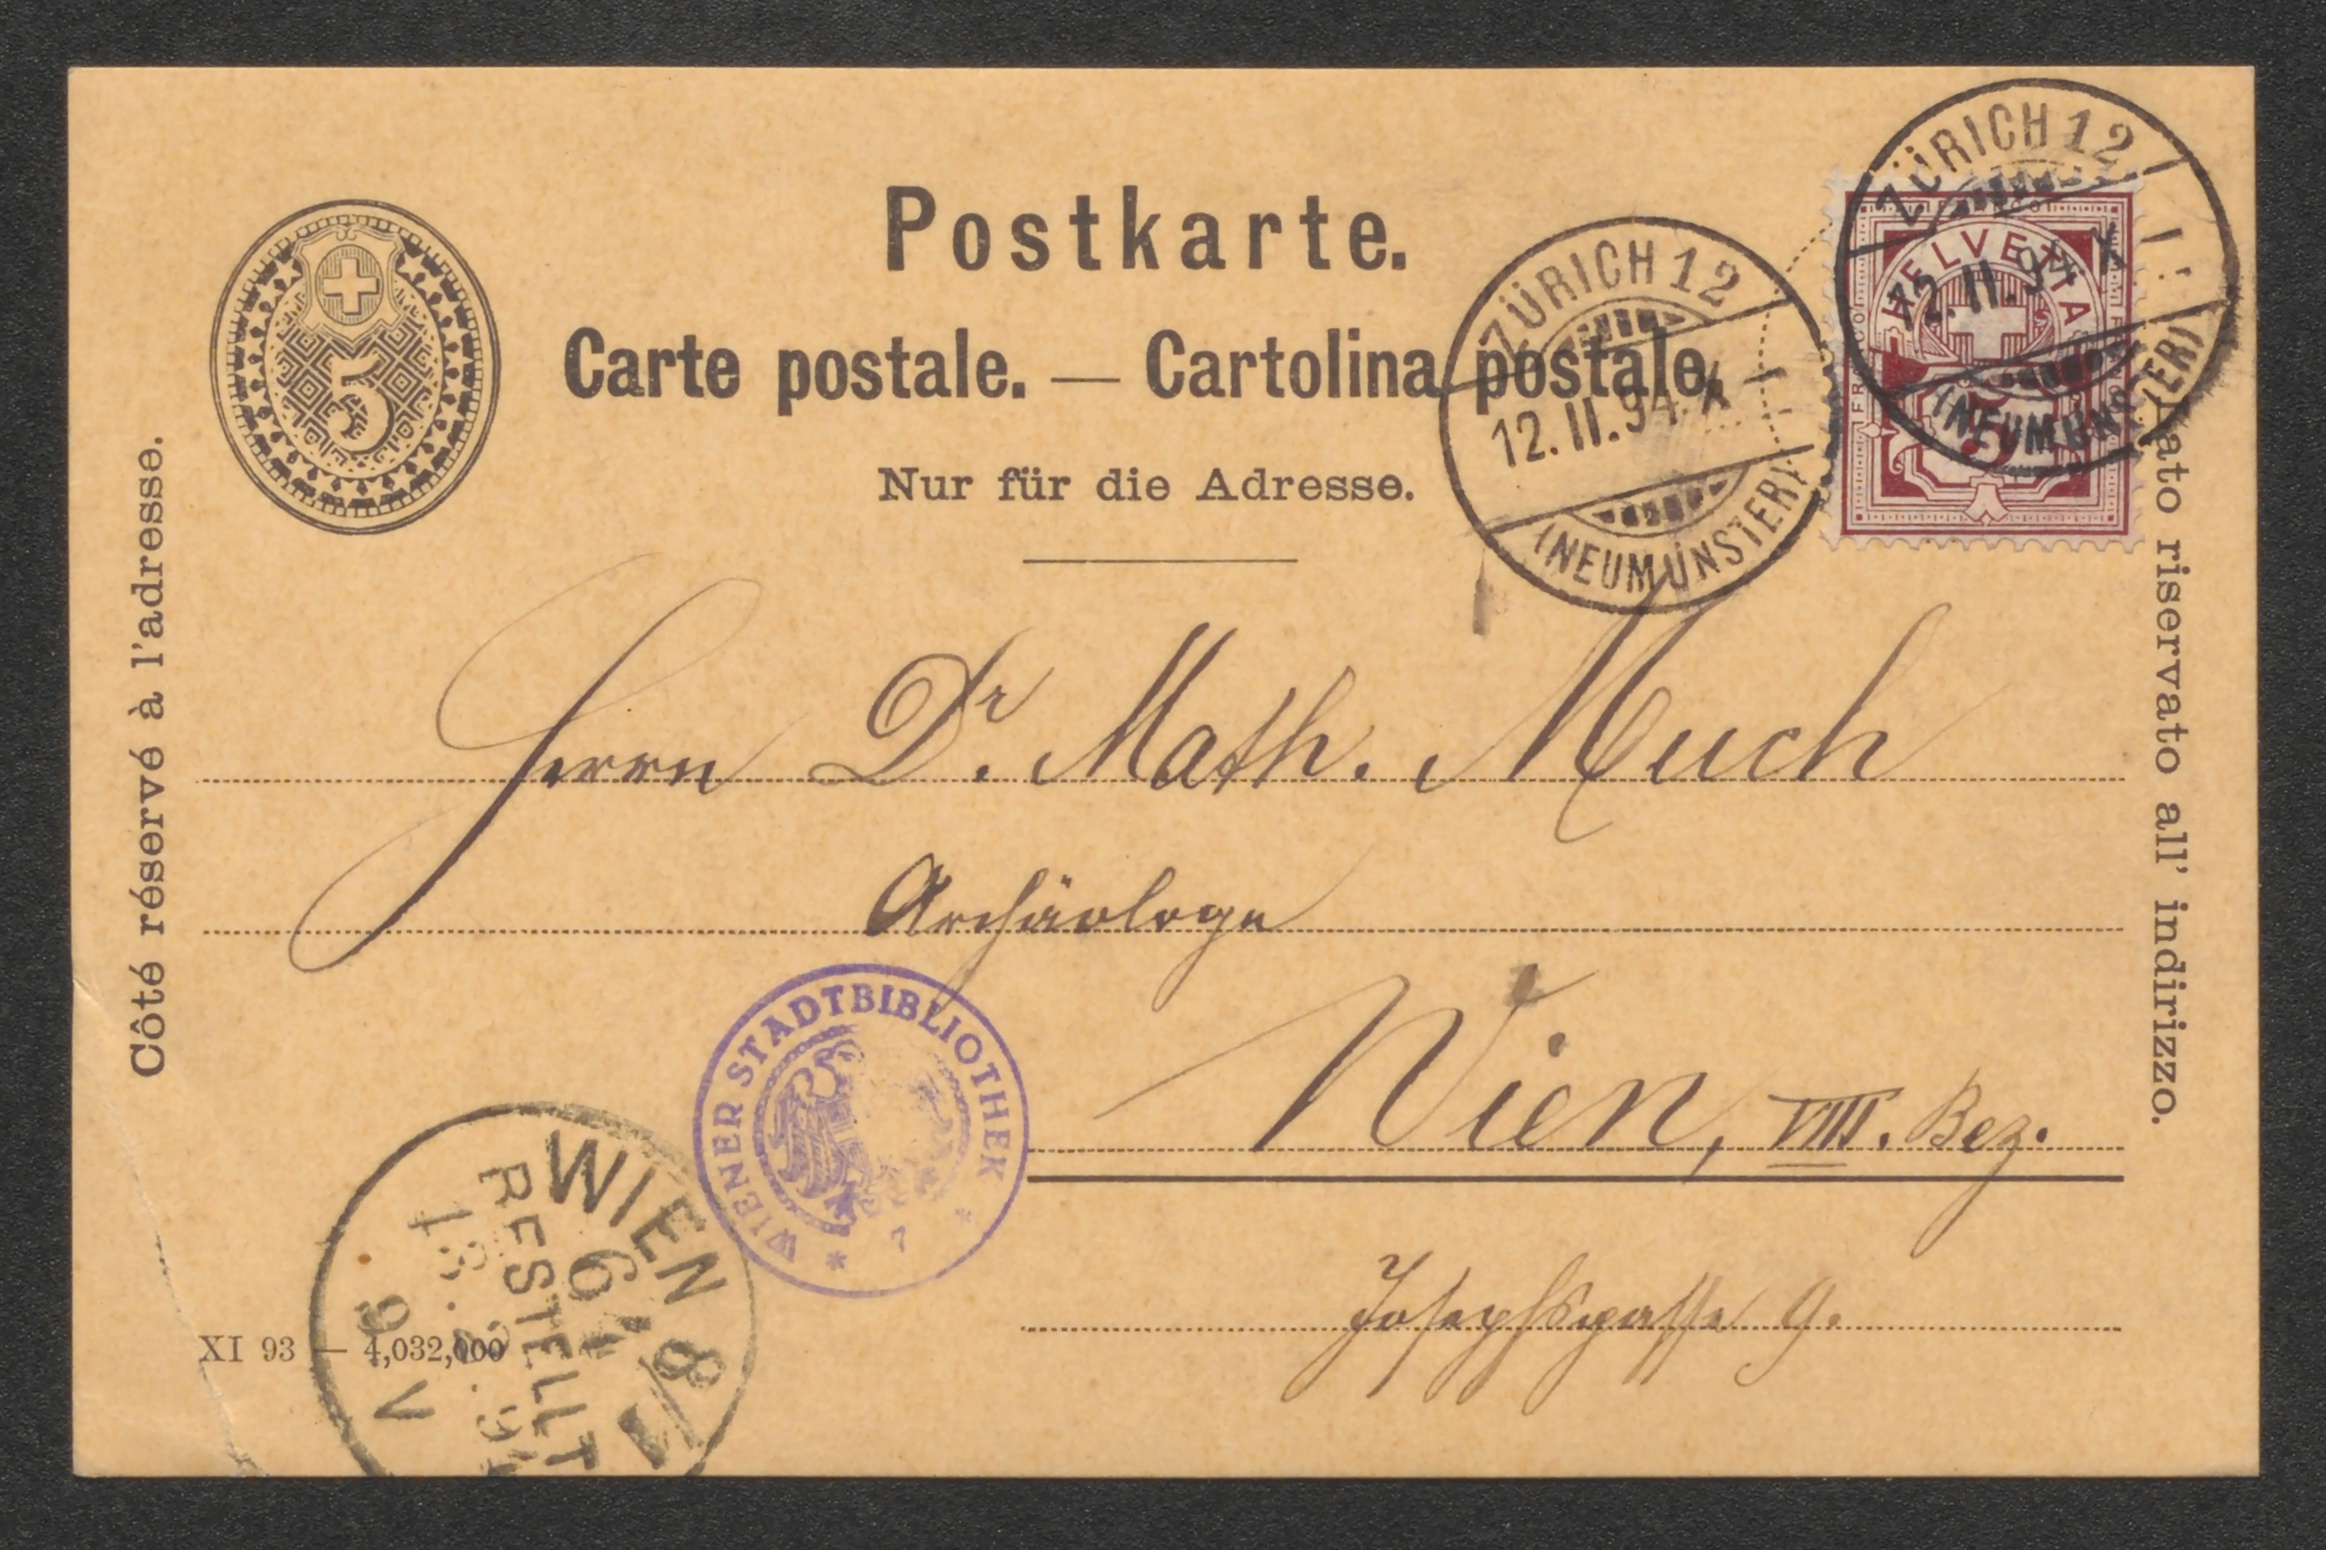 Postkarte.
Carte postale. — Cartolina postale.
Nur für die Adresse.
Côté réservé à l'adresse.
ato riservato all' indirizzo.
5
ZÜRICH 12
12.II.94.X
(NEUMÜNSTER)
ZÜRICH 12
12.II.94 X
(NEUMÜNSTER)
HELVETIA
FRANCO
5
Herrn Dr. Math. Much
Archäologe
Wien, VIII. Bez.
Josephsgasse 9.
WIENER STADTBIBLIOTHEK
* 7 *
WIEN 8/1
BESTELLT
9 V
XI 93 — 4,032,000